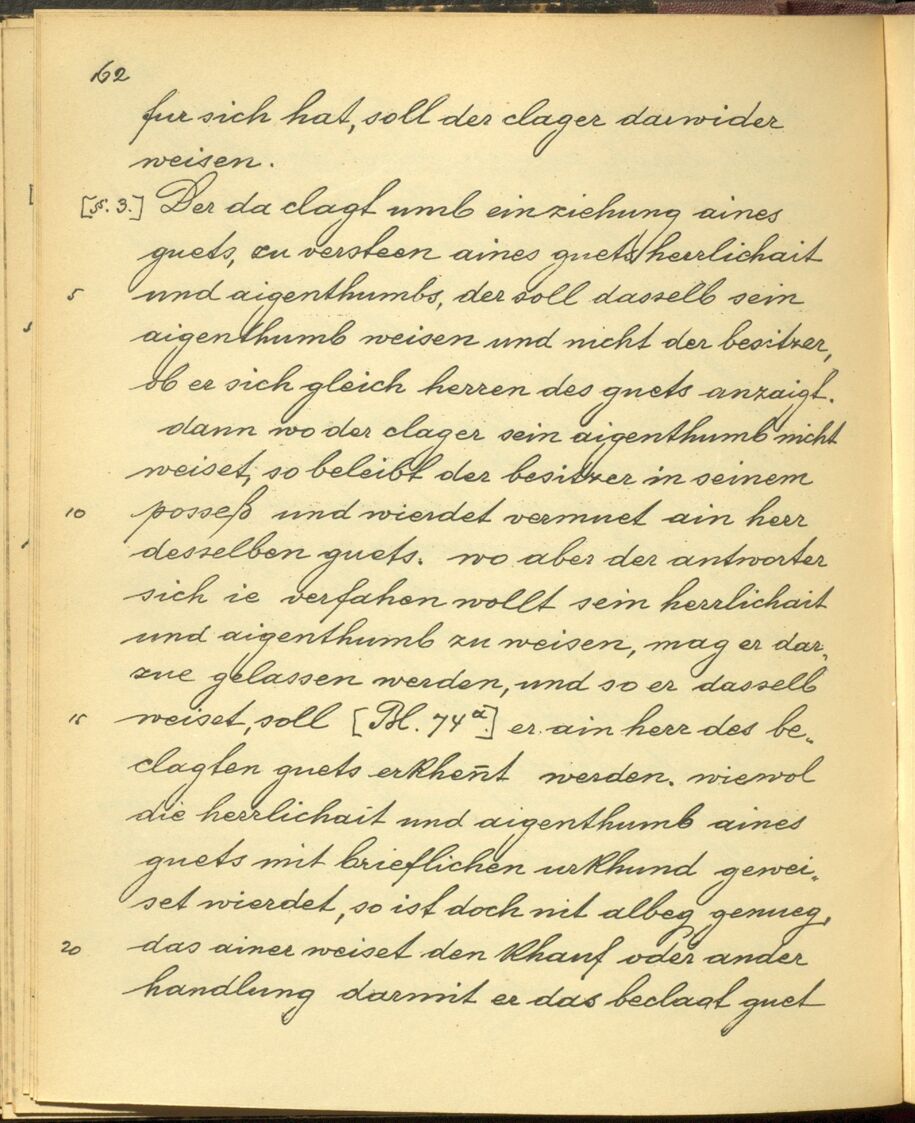 62
fur sich hat, soll der clager darwider
weisen.
[§. 3.] Der da clagt umb einziehung aines
guets, zu versteen aines guets herrlichait
5 und aigenthumbs, der soll dasselb sein
aigenthumb weisen und nicht der besitzer,
ob er sich gleich herren des guets anzaigt.
dann wo der clager sein aigenthumb nicht
weiset, so beleibt der besitzer in seinem
10 posseß und wierdet vermuet ain herr
desselben guets. wo aber der antworter
sich ie verfahen wollt sein herrlichait
und aigenthumb zu weisen, mag er dar„
zue gelassen werden, und so er dasselb
15 weiset, soll [Bl. 74a.] er ain herr des be„
clagten guets erkhen̄t werden. wiewol
die herrlichait und aigenthumb aines
guets mit brieflichen urkhund gewei„
set wierdet, so ist doch nit albeg genueg,
20 das ainer weiset den khauf oder ander
handlung darmit er das beclagt guet